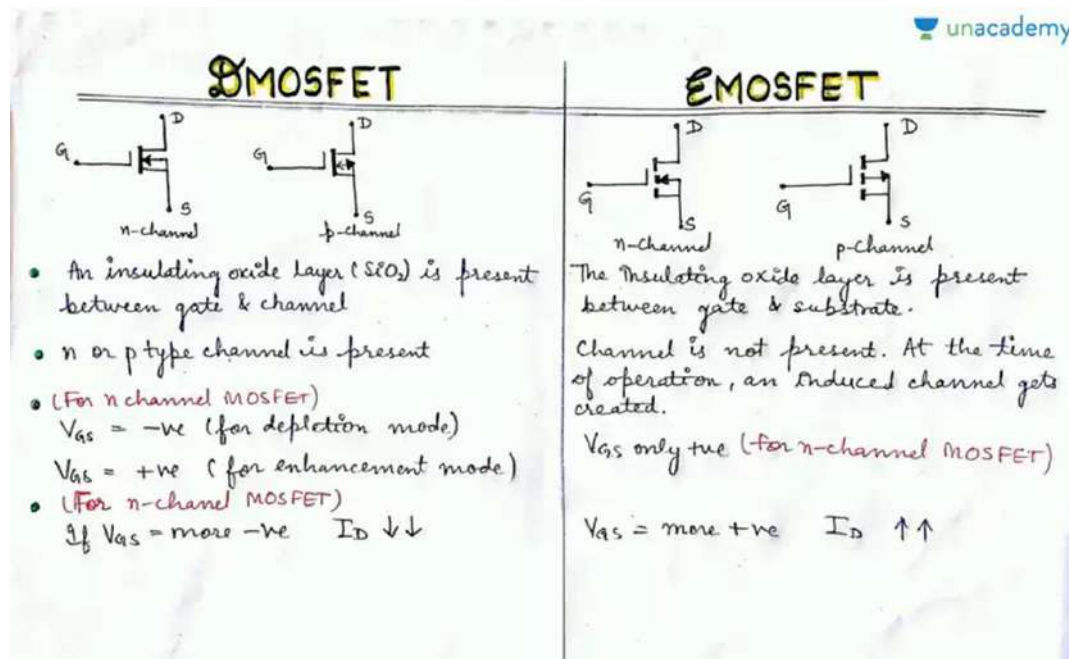 unacademy
DMOSFET
D
G
S
n-channel
D
G
S
p-channel
• An insulating oxide layer (SiO₂) is present
between gate & channel
• n or p type channel is present
• (For n channel MOSFET)
VGS = -ve (for depletion mode)
VGS = +ve (for enhancement mode)
• (For n-chanel MOSFET)
If VGS = more -ve ID ↓↓
EMOSFET
D
G
S
n-channel
D
G
S
p-channel
The Insulating oxide layer is present
between gate & substrate.
Channel is not present. At the time
of operation, an induced channel gets
created.
VGS only +ve (for n-channel MOSFET)
VGS = more +ve ID ↑↑